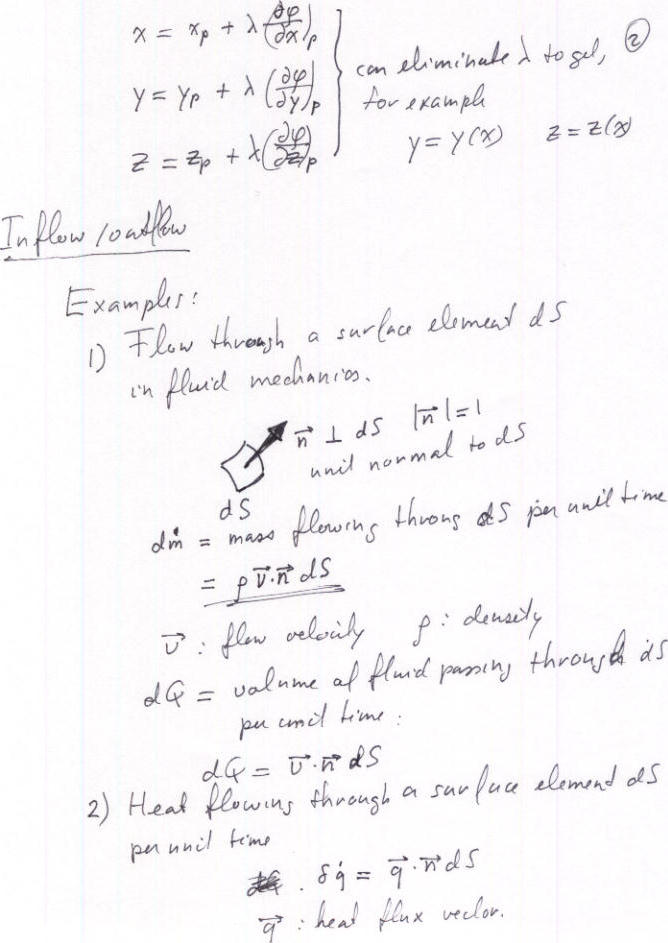 x = x_p + λ(∂φ/∂x)_p
②
y = y_p + λ(∂φ/∂y)_p } can eliminate λ to get,
for example
z = z_p + λ(∂φ/∂z)_p y = y(x) z = z(x)
Inflow/outflow
Examples:
1) Flow through a surface element dS
in fluid mechanics.
n⃗ ⊥ dS |n⃗| = 1
unit normal to dS
dS
dṁ = mass flowing throug dS per unit time
= ρ v⃗·n⃗ dS
v⃗ : flow velocity ρ : density
dQ = volume of fluid passing through dS
per unit time :
dQ = v⃗·n⃗ dS
2) Heat flowing through a surface element dS
per unit time
δq̇ = q⃗·n⃗ dS
q⃗ : heat flux vector.